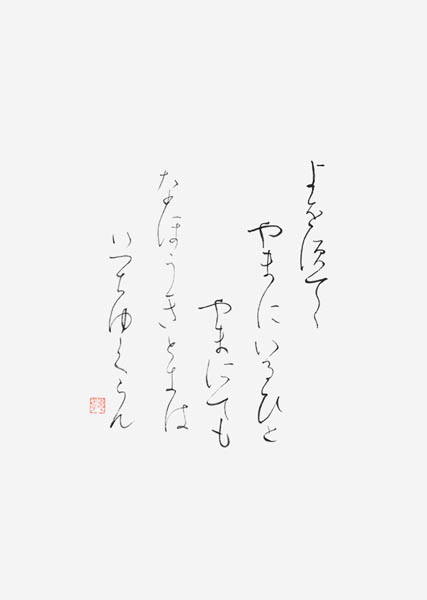 よを須てゝ
やまにいるひと
やまにても
なほうきときは
いつちゆくらん